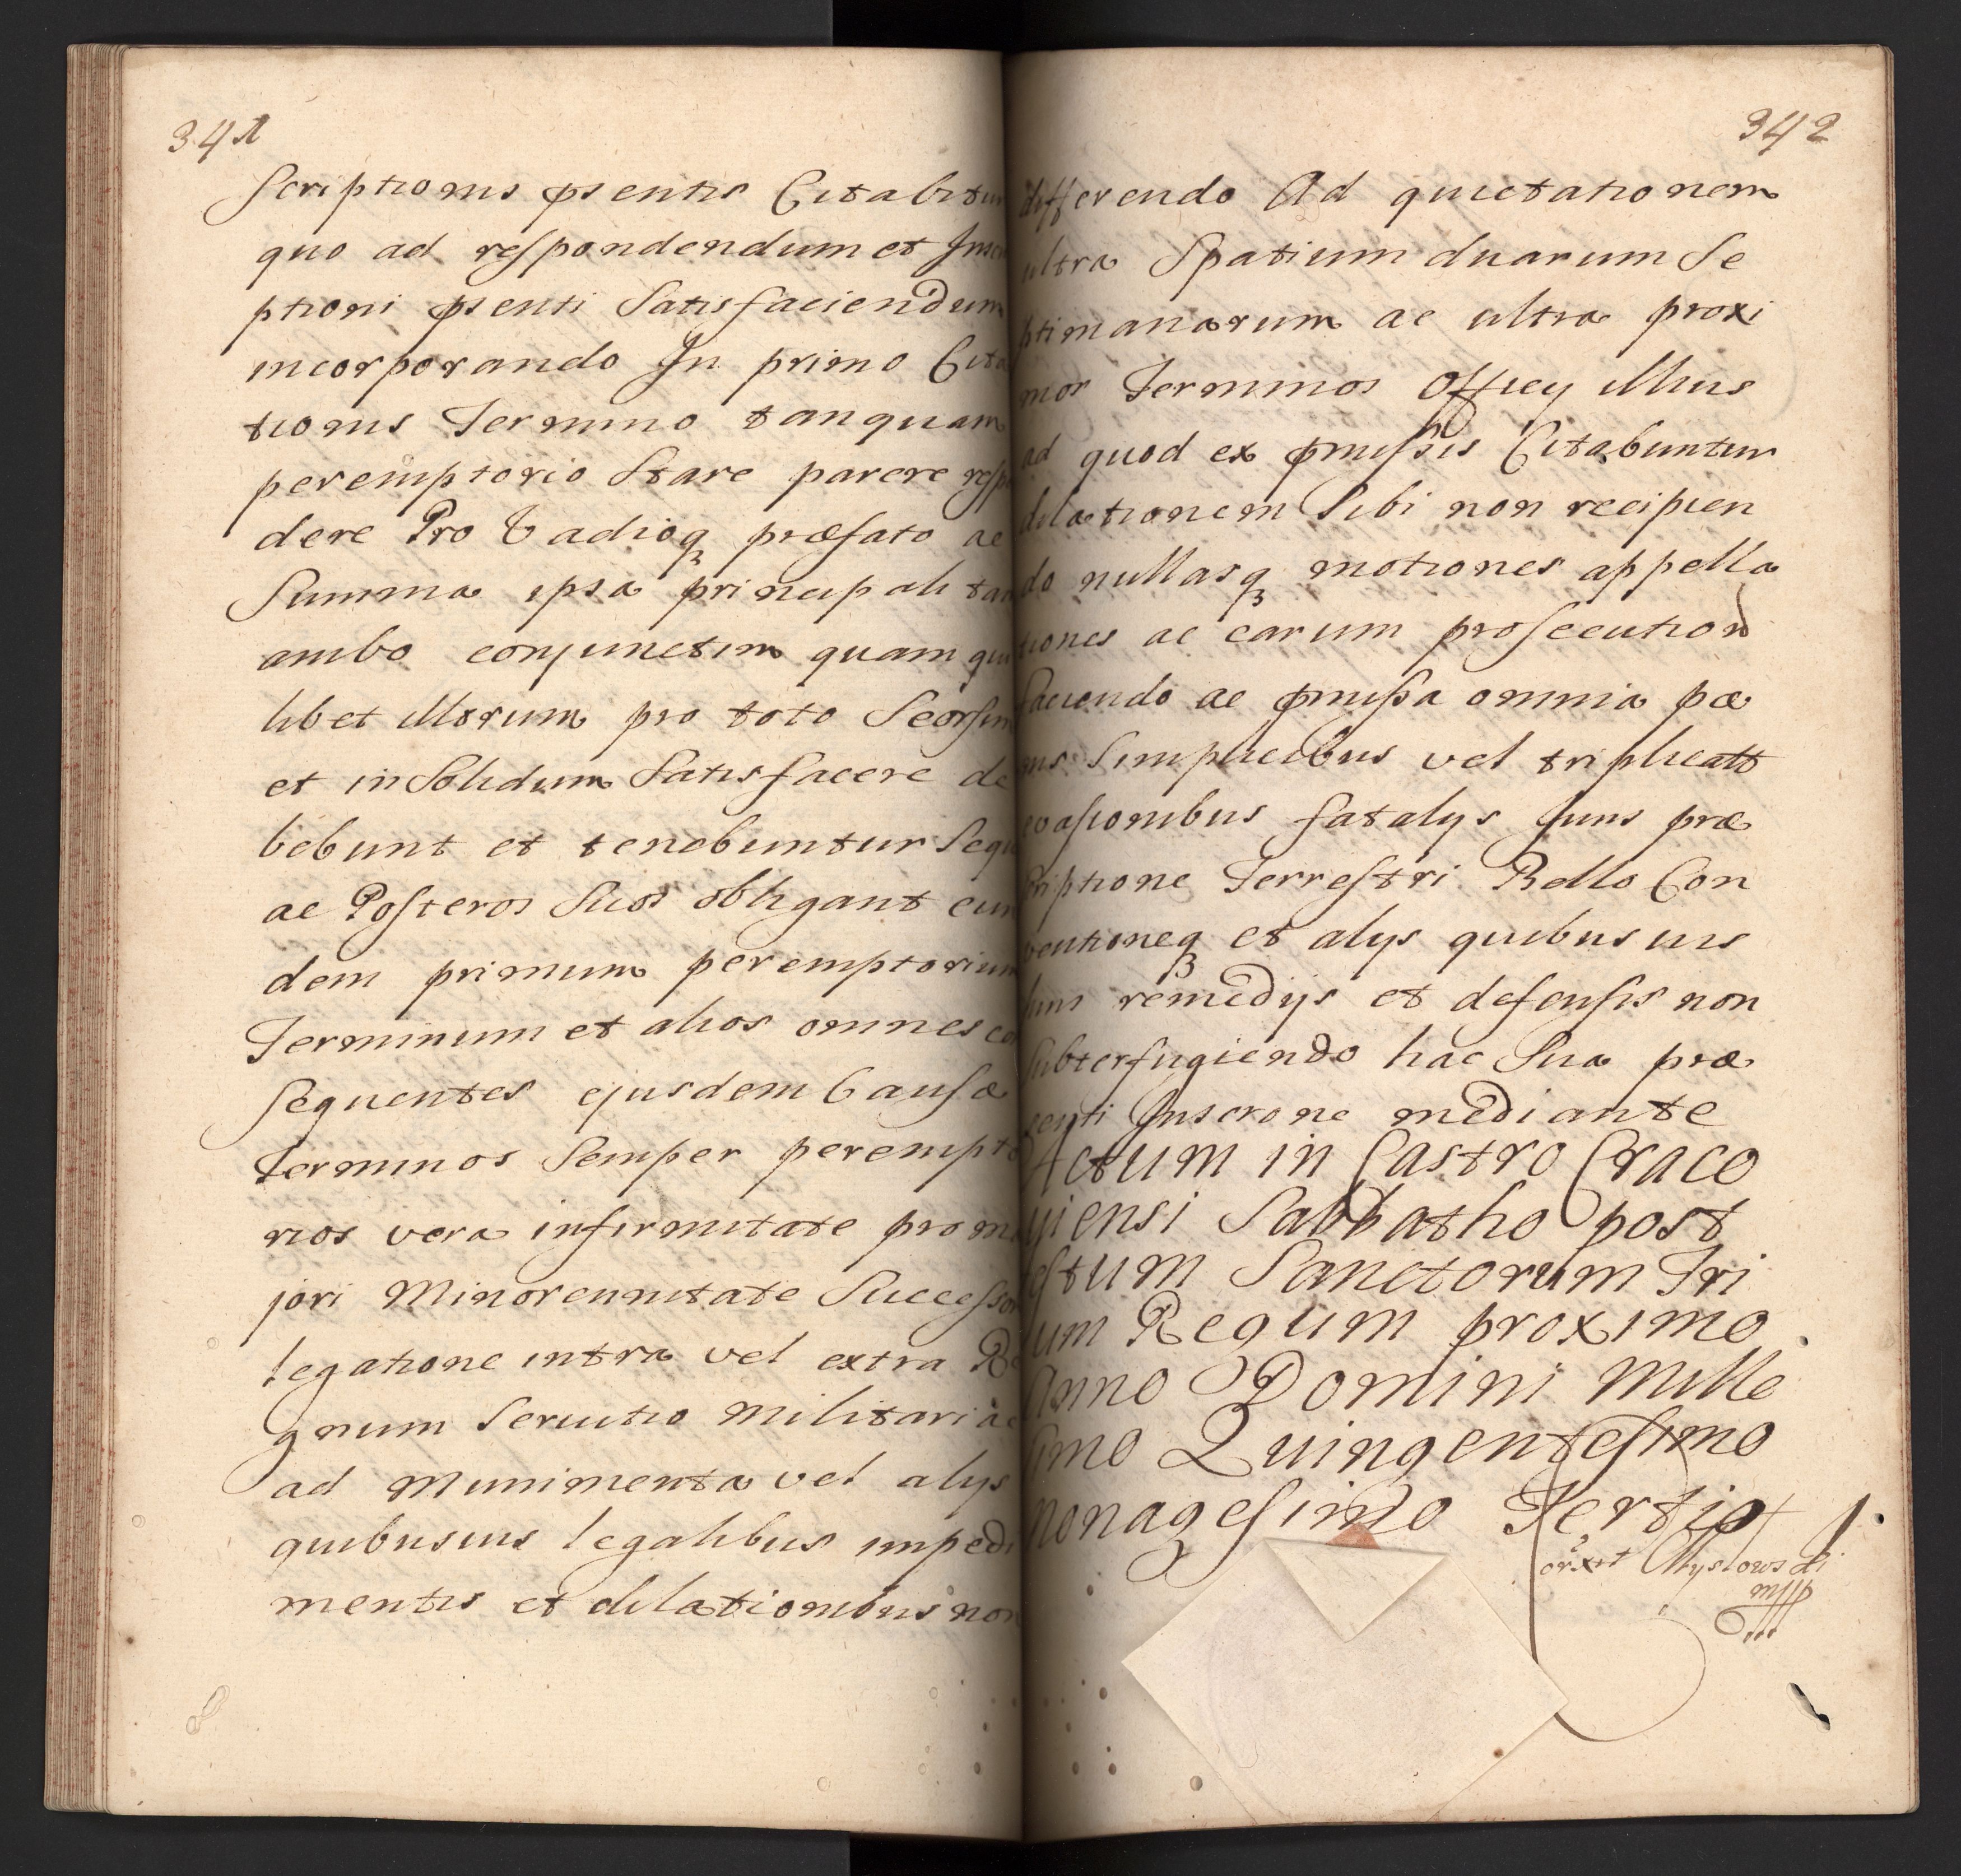 341
Scriptionis psentis Citabitur
quo ad respondendum et Inscri
ptioni psenti Satisfaciendum
incorporando In primo Cita
tionis Termino tanquam
peremptorio Stare parere respo
dere Pro Vadioq præfato ac
Summa ipsa principali tam
ambo conjunctim quam qui
libet illorum pro toto Seorsim
et in Solidum Satisfacere de
bebunt et tenebuntur Sequ
ac Posteros Suos obligant eun
dem primum peremptorium
Terminum et alios omnes con
Sequentes ejusdem Causæ
Terminos Semper perempto
rios vera infirmitate pro ma
jori Minorennitate Successor
legatione intra vel extra Re
gnum Servitio Militari ac
ad Munimenta vel alys
quibusvis legalibus impedi
mentis et dilationibus non
342
differendo Ad quietationem
ultra Spatium duarum Se
ptimanarum ac ultra proxi
mos Terminos Officy illius
ad quod ex pmissis Citabuntur
dilationem Sibi non recipien
do nullasq motiones appella
tiones ac earum prosecution
faciendo ac pmissa omnia pæ
nis Simplicibus vel triplicatt
evasionibus fatalys Juris præ
scriptione Terrestri Bello Con
ventioneq et alys quibusvis
Juris remedijs et defensis non
Subterfugiendo hac Sua præ
senti Inscrone mediante
Actum in Castro Craco
viensi Sabbatho post
festum Sanctorum Tri
um Regum proximo.
Anno Domini Mille
simo Quingentesimo
Nonagesimo Tertio